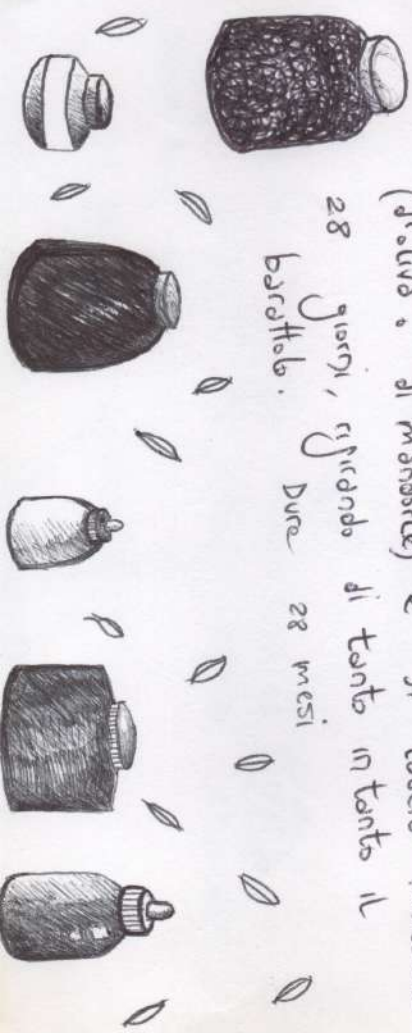 (d'oliva o di mandorle) e si lascia
28 giorni, rigirando di tanto in tanto il
barattolo. Dura 28 mesi